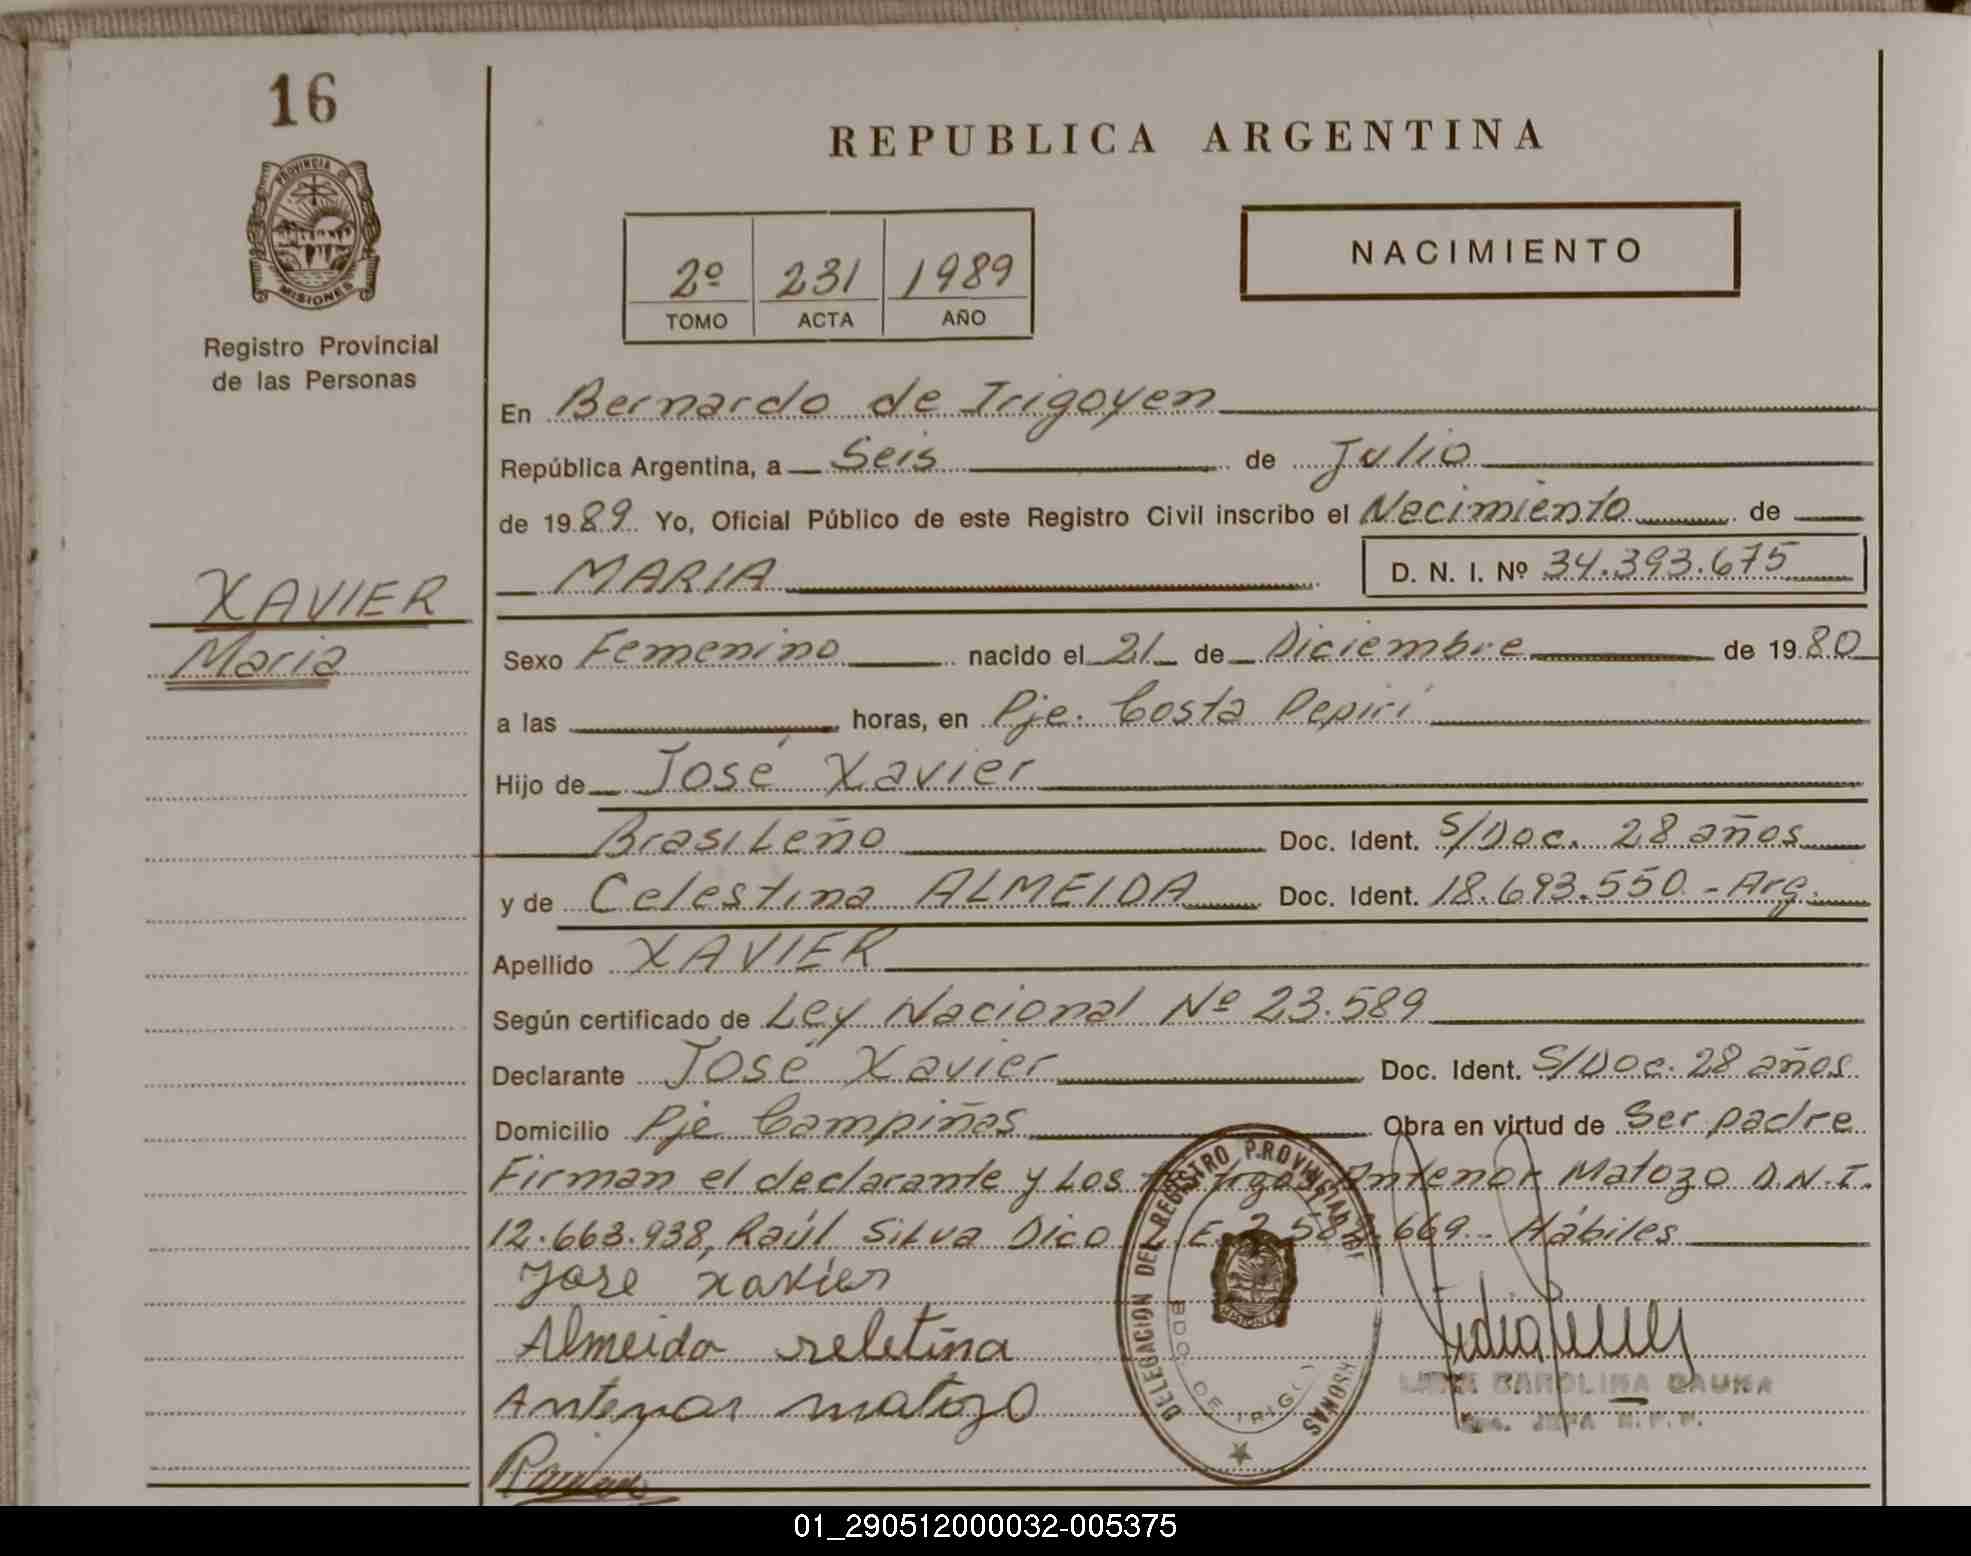 16
PROVINCIA DE
MISIONES
Registro Provincial
de las Personas
XAVIER
Maria
REPUBLICA ARGENTINA
2º 231 1989
TOMO ACTA AÑO
NACIMIENTO
En Bernardo de Irigoyen
República Argentina, a Seis de Julio
de 1989 Yo, Oficial Público de este Registro Civil inscribo el Nacimiento de
MARIA D. N. I. Nº 34.393.675
Sexo Femenino nacido el 21 de Diciembre de 1980
a las horas, en Pje. Costa Pepirí
Hijo de José Xavier
Brasileño Doc. Ident. S/Doc. 28 años
y de Celestina ALMEIDA Doc. Ident. 18.693.550 - Arg.
Apellido XAVIER
Según certificado de Ley Nacional Nº 23.589
Declarante José Xavier Doc. Ident. S/Doc. 28 años
Domicilio Pje Campiñas Obra en virtud de Ser padre
Firman el declarante y Los Antenor Matozo D.N.I.
12.663.938, Raúl Silva Dico L.E. 669.- Hábiles
Jose xavier
Almeida seletina
Antenor matozo
DELEGACION DEL REGISTRO PROVINCIAL DE
BDO. DE IRIG
CAROLINA GAUNA
JEFA R.P.P.
01_290512000032-005375